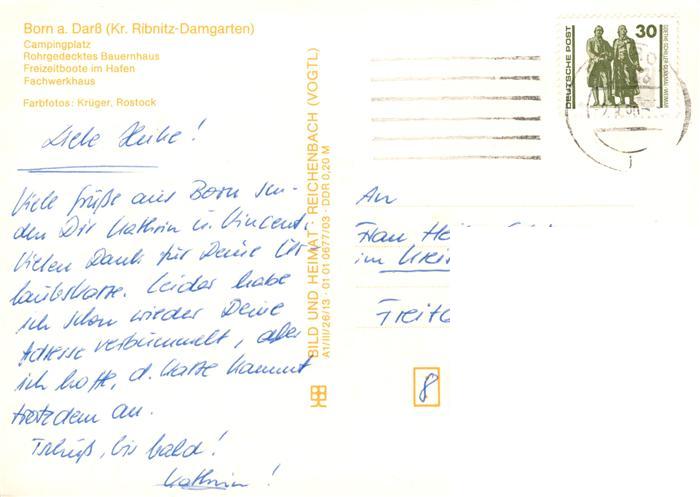 Born a. Darß (Kr. Ribnitz-Damgarten)
Campingplatz
Rohrgedecktes Bauernhaus
Freizeitboote im Hafen
Fachwerkhaus
Farbfotos: Krüger, Rostock
Liebe Heike!
Viele Grüße aus Born sen-
den Dir Kathrin u. Vincent.
Vielen Dank für Deine Ur-
laubskarte. Leider habe
ich schon wieder Deine
Adresse verbummelt, aber
ich hoffe, d. Karte kommt
trotzdem an.
Tschüß, bis bald!
Kathrin!
BILD UND HEIMAT · REICHENBACH (VOGTL)
A1/III/26/13 · 01 01 0677/03 · DDR 0,20 M
DEUTSCHE POST
30
GOETHE-SCHILLER-DENKMAL · WEIMAR
An
Frau
im
8